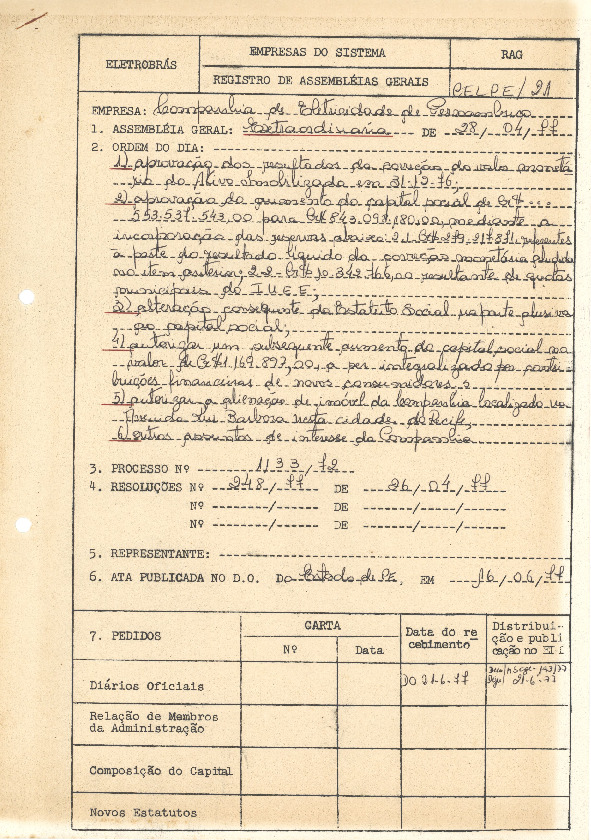 ELETROBRÁS
EMPRESAS DO SISTEMA
REGISTRO DE ASSEMBLÉIAS GERAIS
RAG
PELPE/21
EMPRESA: Companhia de Eletricidade de Pernambuco
1. ASSEMBLÉIA GERAL: Extraordinária DE 28/04/77
2. ORDEM DO DIA:
1) aprovação dos resultados da correção do valor monetá
rio do Ativo Imobilizado em 31-12-76;
2) aprovação do aumento do capital social de Cr$...
553.537.543,00 para Cr$ 843.097.180,00, mediante a
incorporação das reservas abaixo: 2.1 Cr$ referentes
a parte do resultado líquido da correção monetária aludida
no item anterior; 2.2- Cr$ 10.342.766,00 resultante de quotas
municipais do I.U.E.E;
3) alteração consequente do Estatuto Social na parte alusiva
ao capital social;
4) autorizar um subsequente aumento do capital social no
valor de Cr$ 1.169.897,00, a ser integralizado por contri
buições financeiras de novos consumidores e
5) autorizar a alienação de imóvel da Companhia localizado na
Avenida Rui Barbosa nesta cidade do Recife,
6) outros assuntos de interesse da Companhia
3. PROCESSO Nº 1133/72
4. RESOLUÇÕES Nº 248/77 DE 26/04/77
Nº ------/----- DE -----/-----/-----
Nº ------/----- DE -----/-----/-----
5. REPRESENTANTE:
6. ATA PUBLICADA NO D.O. Do Estado de PE, EM 16/06/77
7. PEDIDOS
CARTA
Nº
Data
Data do re
cebimento
Distribui-
ção e publi
cação no
Diários Oficiais
DO 21-6-77
21-6-77
Relação de Membros
da Administração
Composição do Capital
Novos Estatutos